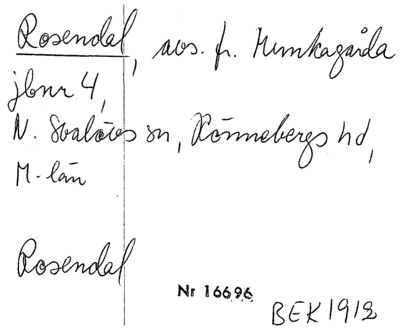 Rosendal, avs. fr. Munkagårda
jbnr 4,
N. Svalövs sn, Rönnebergs hd,
M-län
Rosendal
Nr 16696
BEK 1912